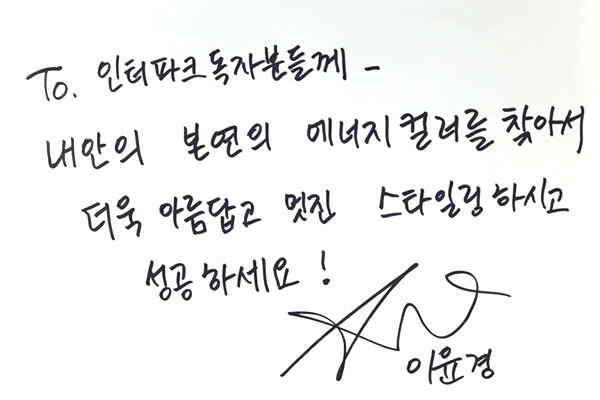 To. 인터파크독자분들께 -
내안의 본연의 에너지컬러를 찾아서
더욱 아름답고 멋진 스타일링하시고
성공하세요!
이윤경